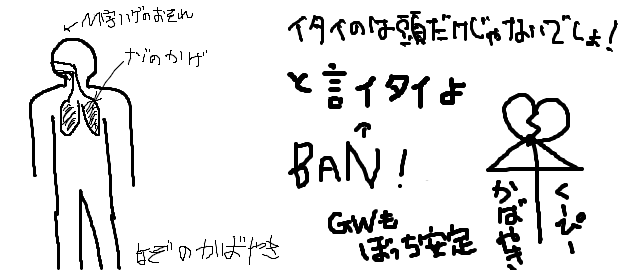 M字ハゲのおそれ
ナゾのかげ
なぞのかばやき
イタイのは頭だけじゃないでしょ!
と言イタイよ
BAN!
GWも
ぼっち安定
くーぴー
かばやき